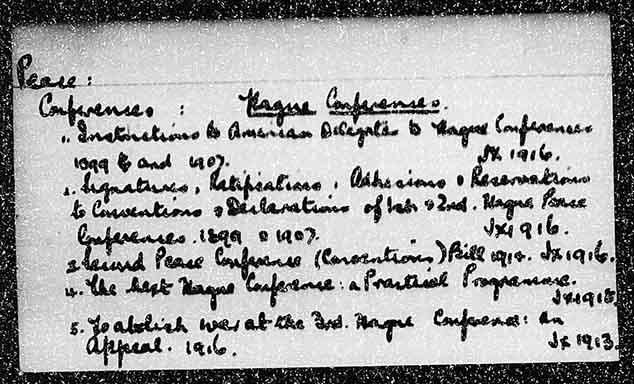 Peace:
Conferences : Hague Conferences.
1. Instructions to American Delegates to Hague Conferences
1899 & and 1907. JX 1916.
2. Signatures, Ratifications, Adhesions & Reservations
to Conventions & Declarations of 1st & 2nd. Hague Peace
Conferences. 1899 & 1907. JX1916.
3. Second Peace Conference (Conventions) Bill 191 . JX1916.
4. The next Hague Conference: a Practical Programme.
JX191
5. To abolish war at the 3rd. Hague Conference: an
Appeal. 1916. JX 1913.